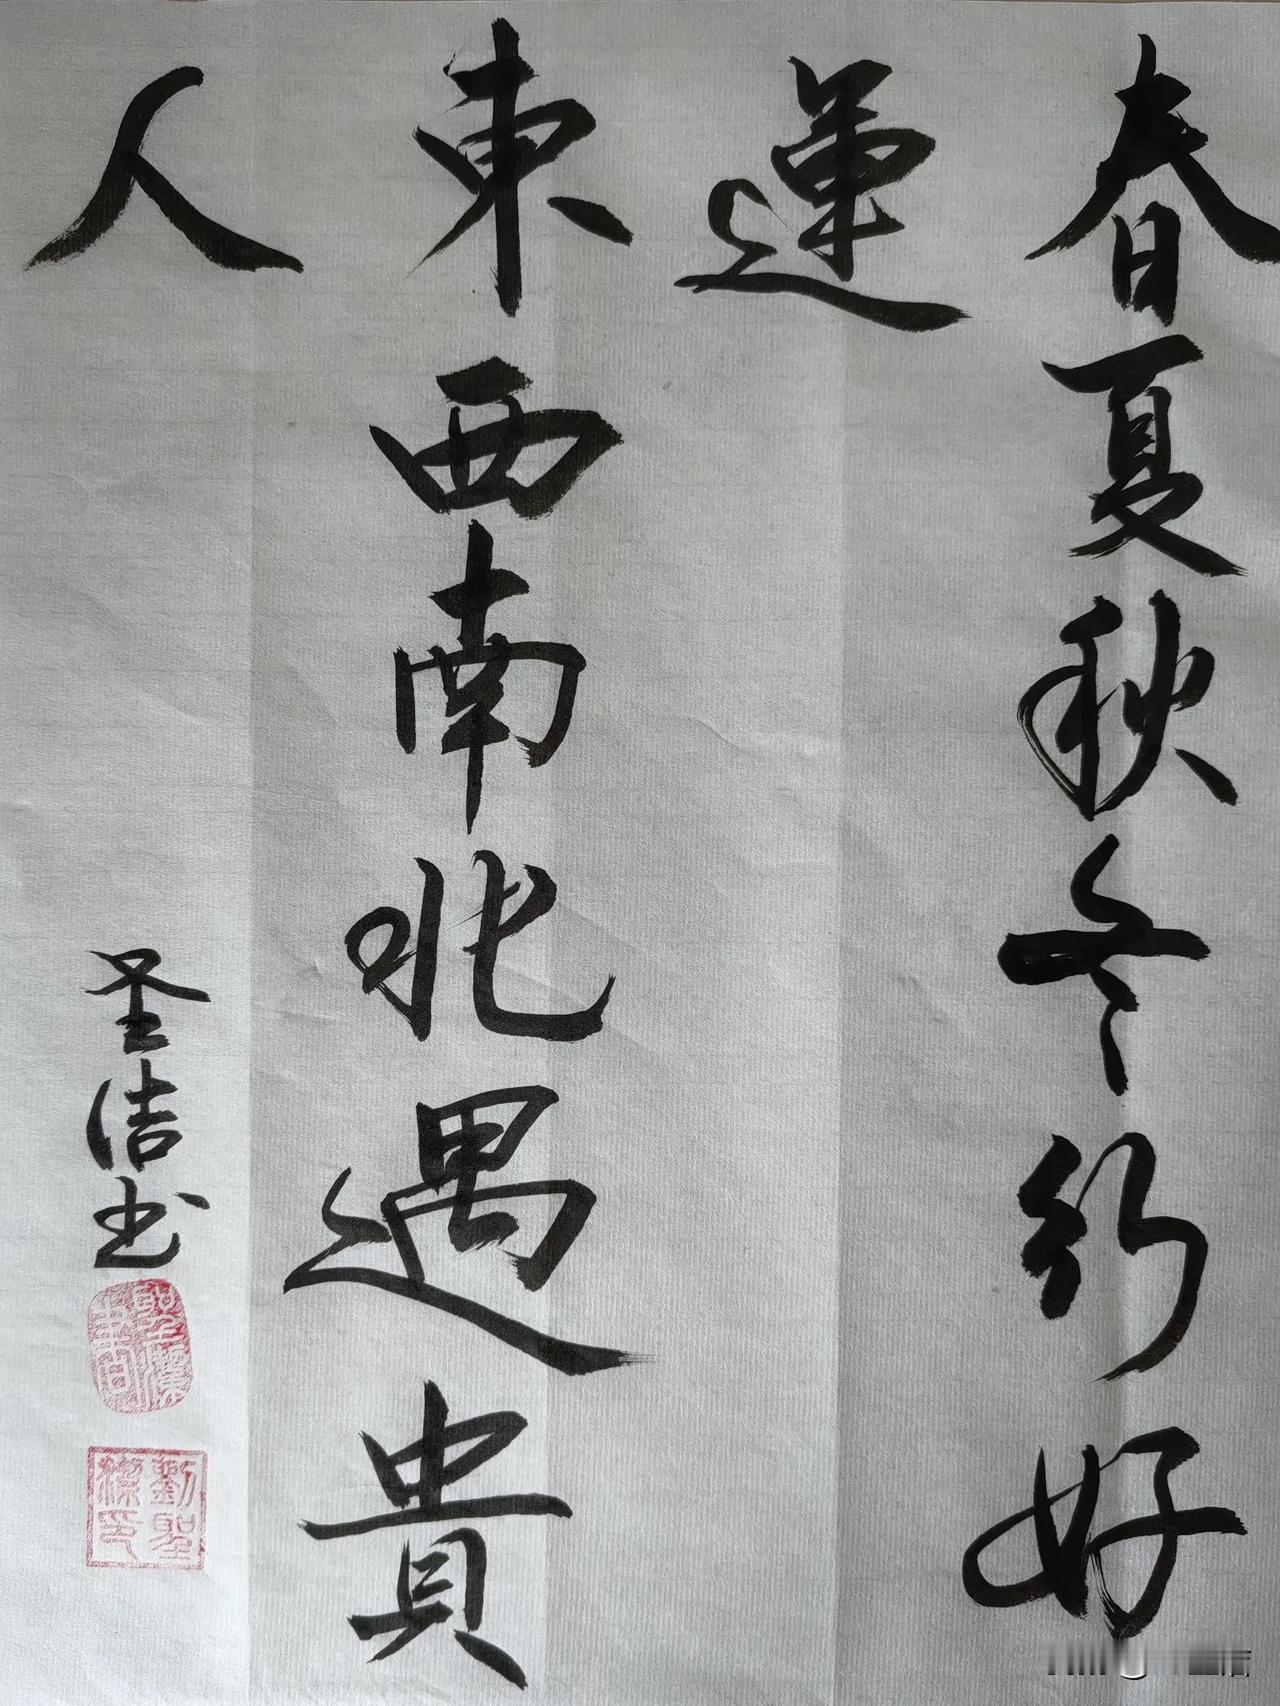 春夏秋冬行好
運
東西南北遇貴
人
圣洁书
聖潔書画
劉聖潔印